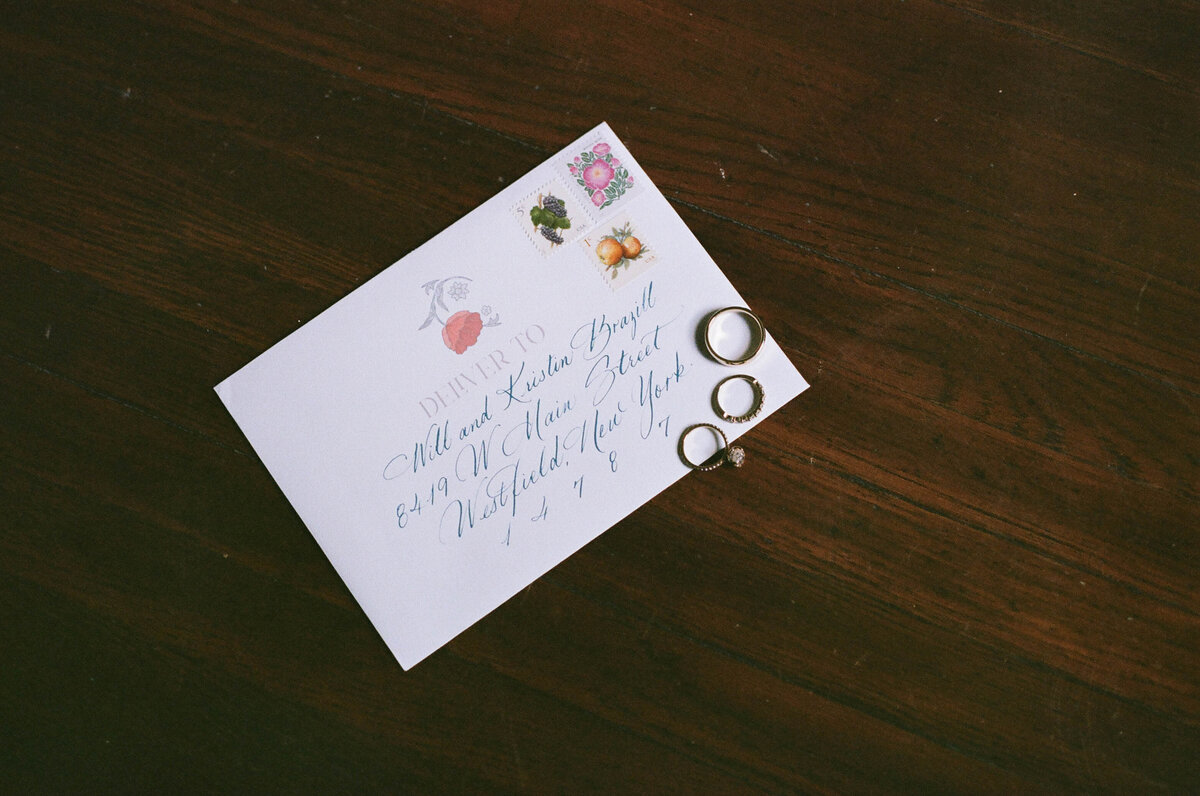 DELIVER TO
Will and Kristin Brazill
8419 W Main Street
Westfield, New York.
1 4 7 8 7
5¢
USA
1¢
USA